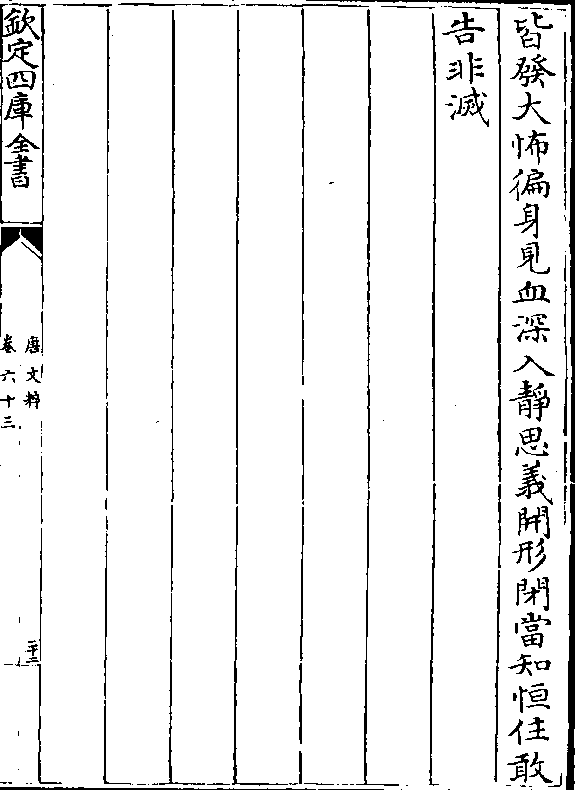 皆發大怖徧身見血深入靜思義開形閉當知恒住敢
告非滅
欽定四庫全書
唐文粹
卷六十三
二十二